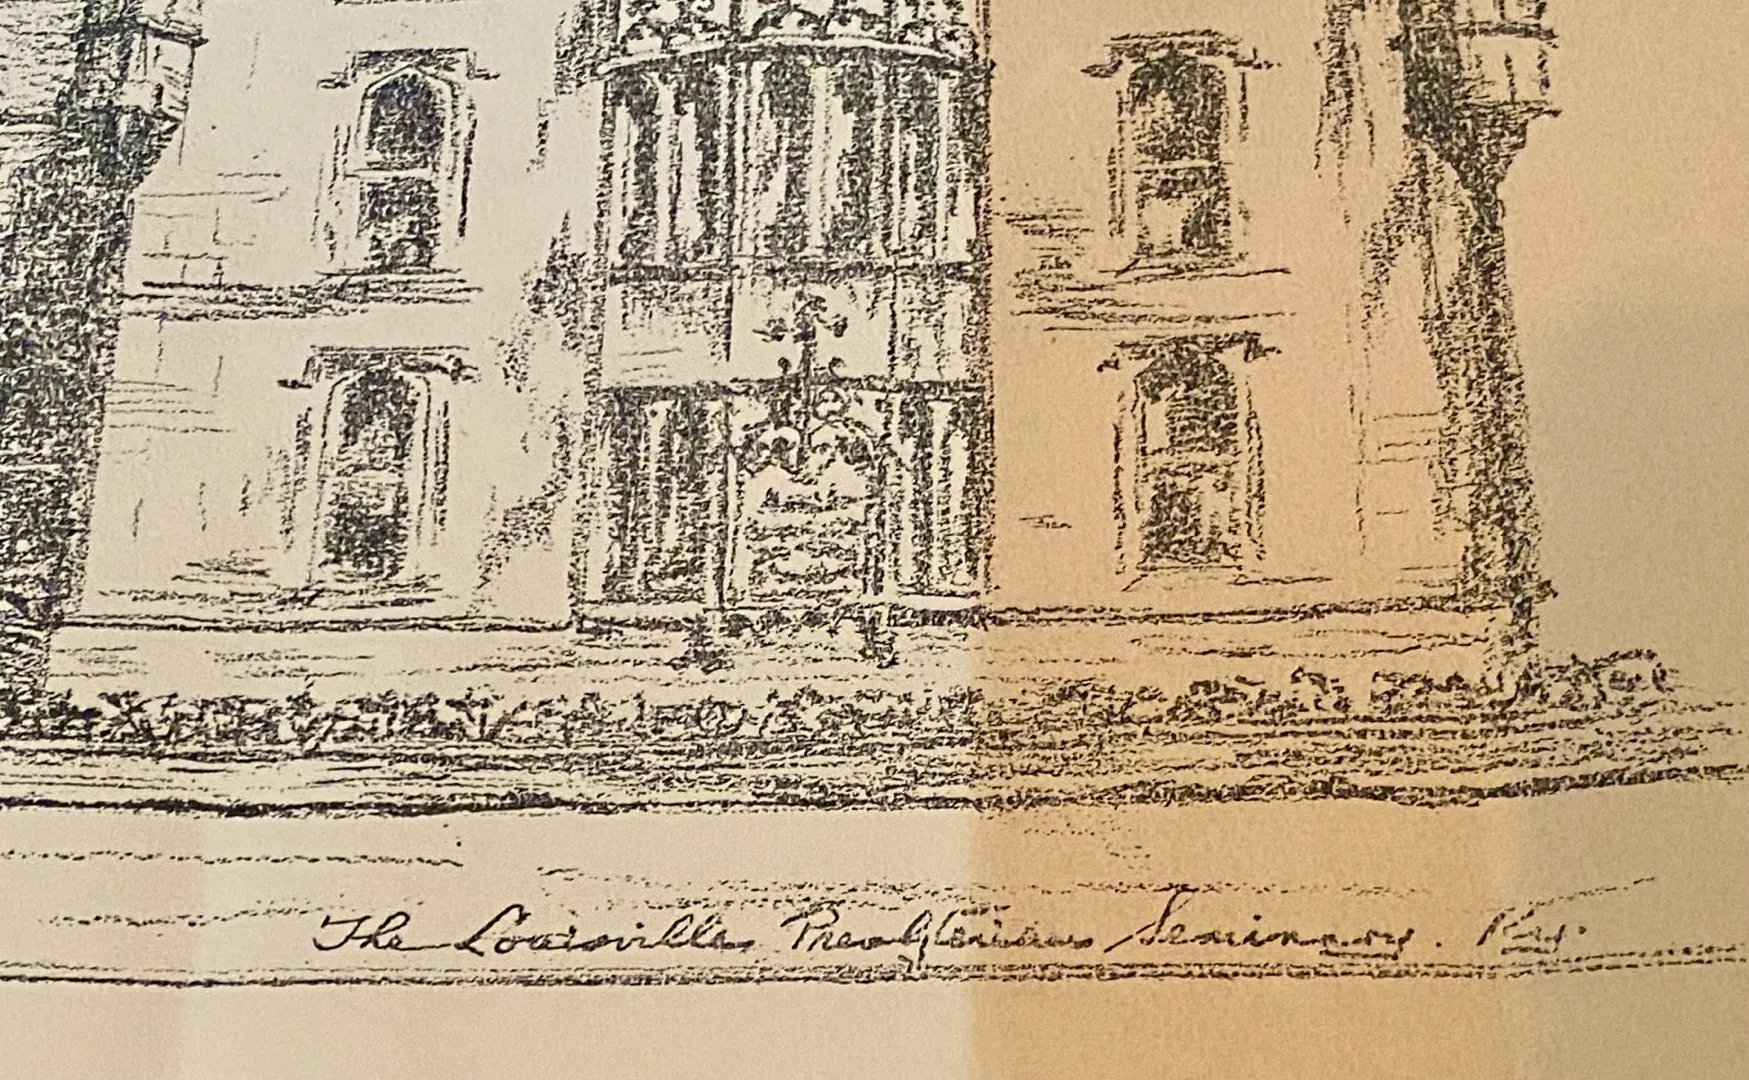 The Louisville Presbyterian Seminary. Ky.